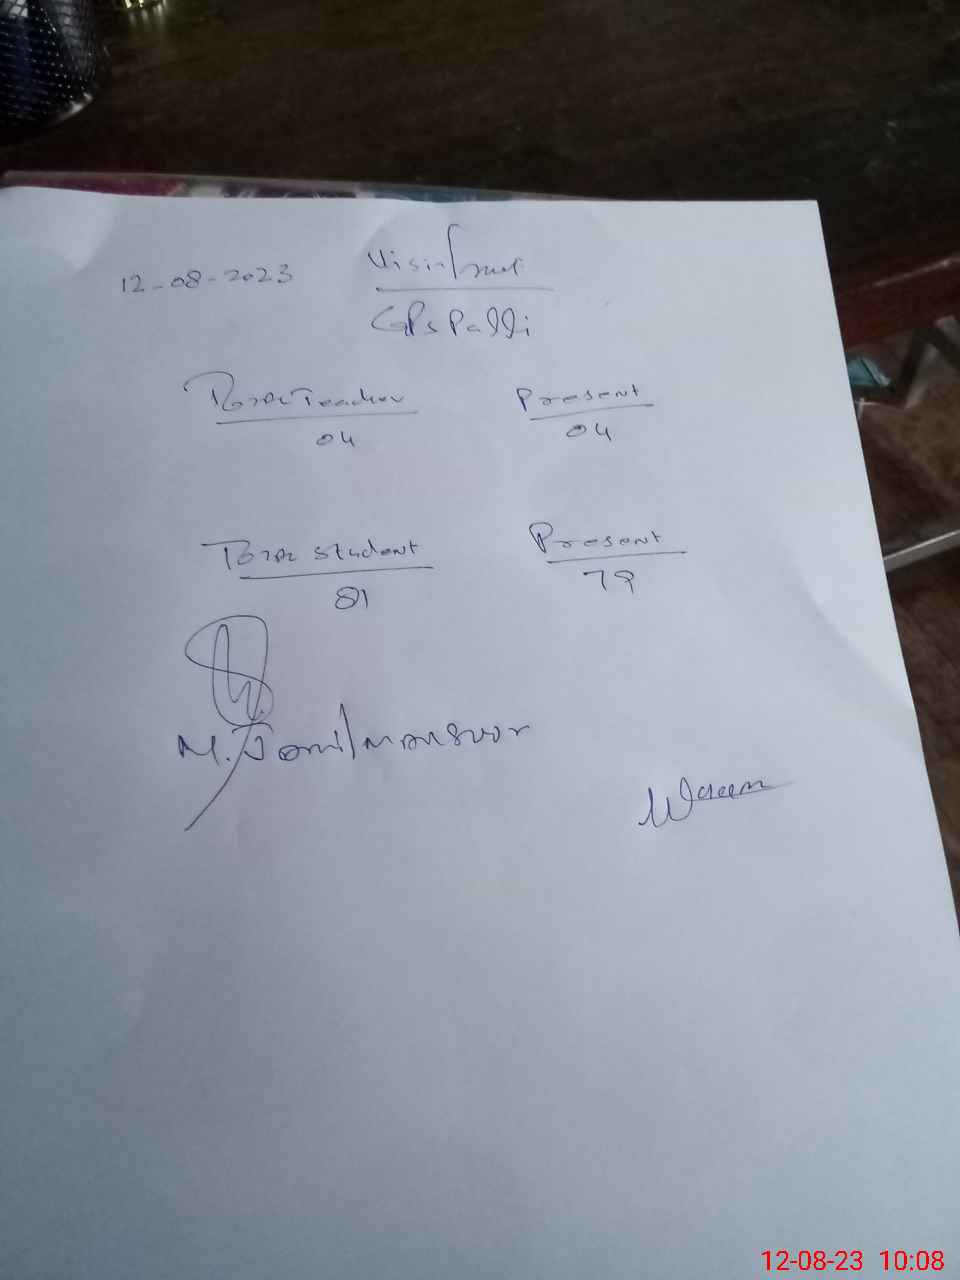 12-08-2023
GPS Palli
Total Teacher Present
04 04
Total student Present
81 79
M. Jamil Mansoor
Waseem
12-08-23 10:08